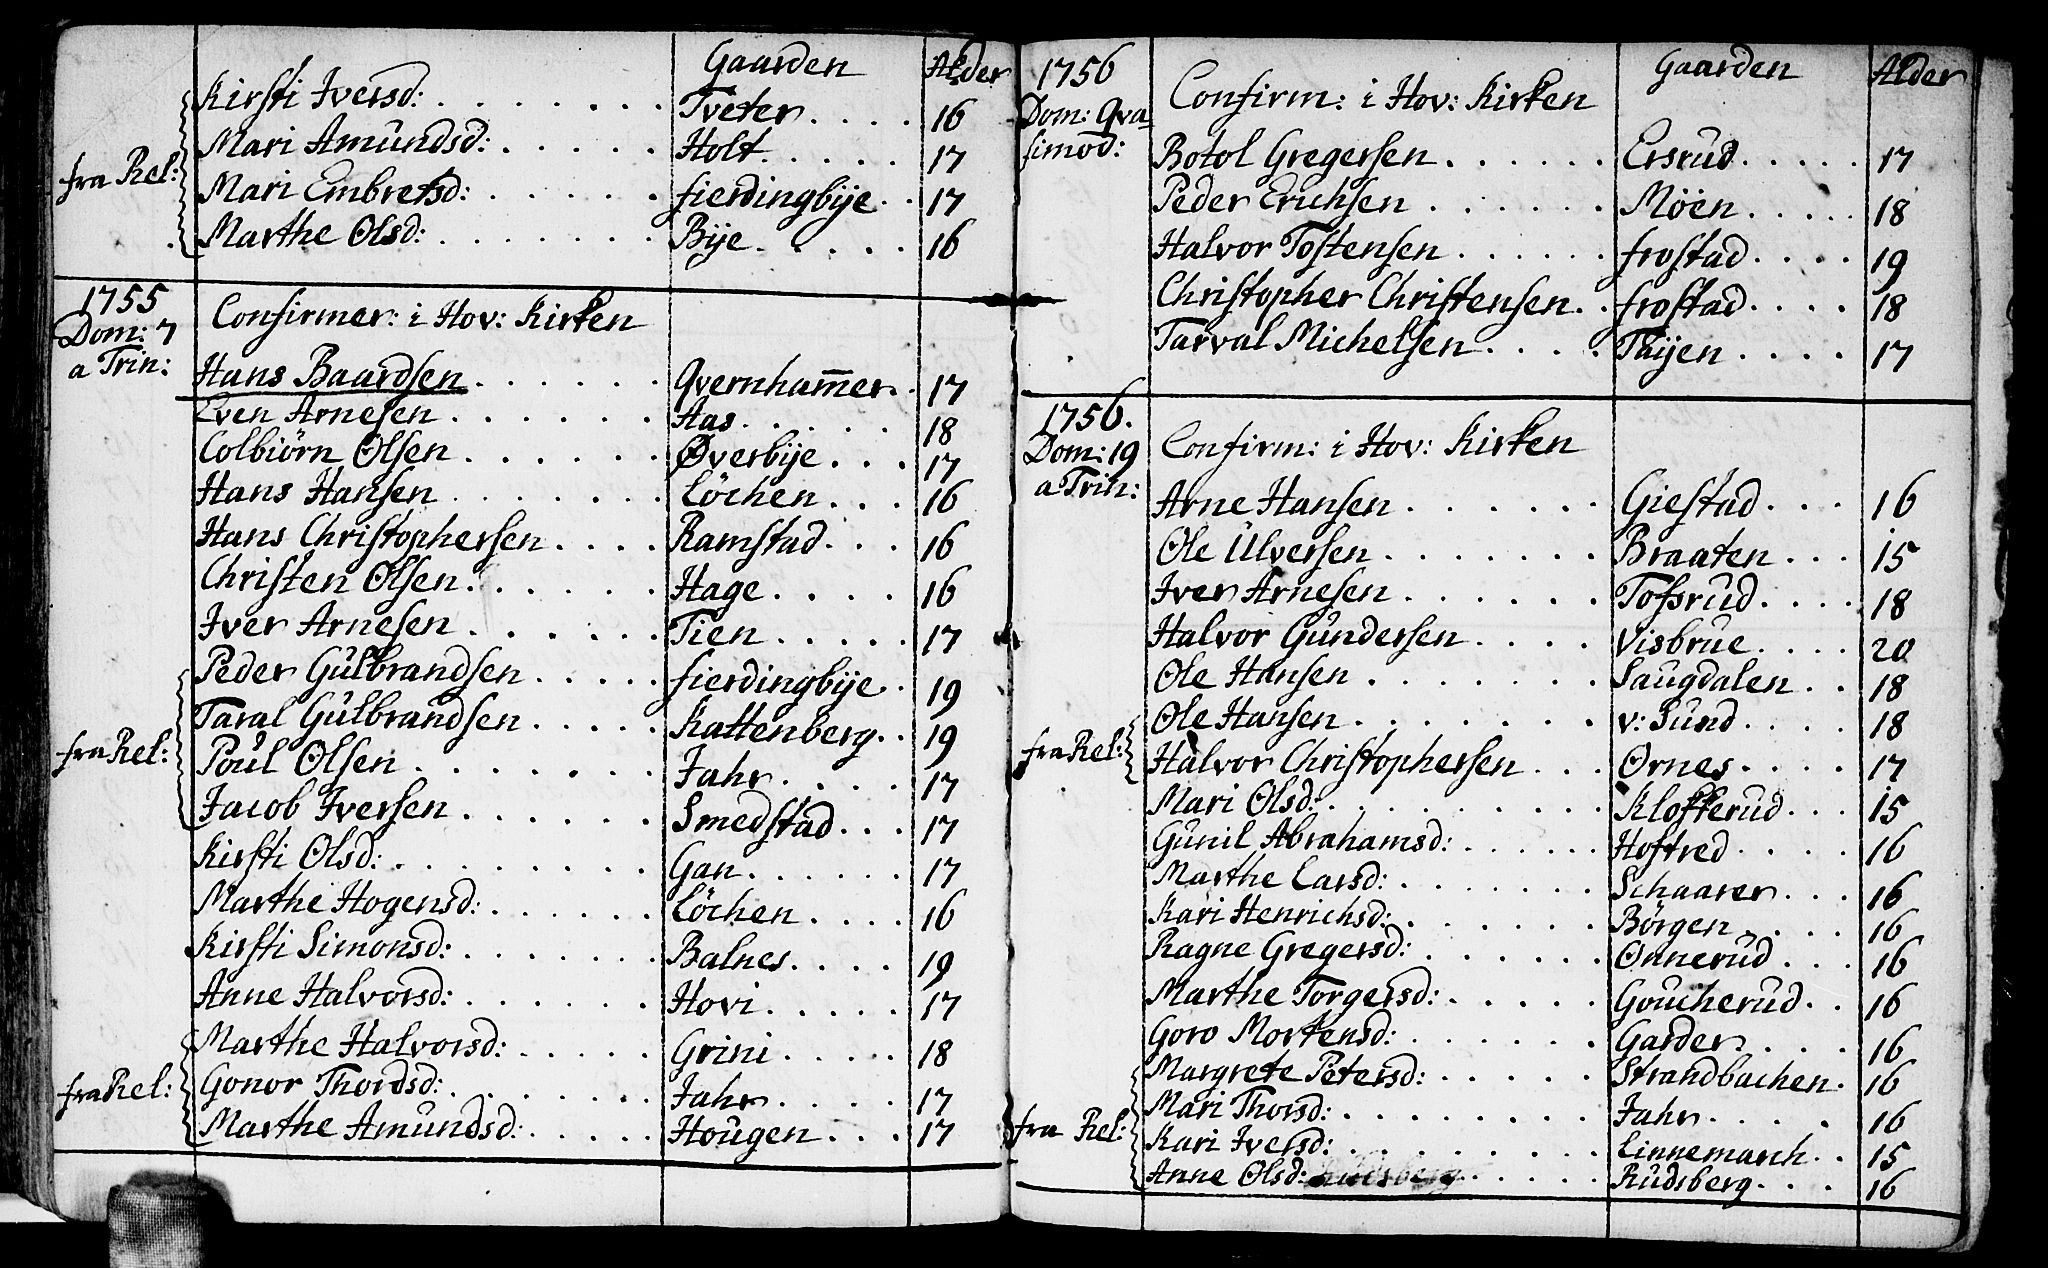 Gaarden Alder
Kirsti Iversd: Tveter 16
Mari Amundsd: Holt 17
fra Rel: Mari Embretsd: fierdingbÿe 17
Marthe Olsd: Bÿe 16
1755 Confirmer: i Hov: Kirken
Dom: 7
a Trin:
Hans Baardsen Qvernham̅er 17
Even Arnesen Aas 18
Colbiörn Olsen Øverbÿe 17
Hans Hansen Löchen 16
Hans Christophersen Ramstad 16
Christen Olsen Hage 16
Iver Arnesen Tien 17
Peder Gulbrandsen fierdingbÿe 19
Taral Gulbrandsen Kattenberg 19
fra Rel: Poul Olsen Jahr 17
Jacob Iversen Smedstad 17
Kirsti Olsd: Gan 17
Marthe Hogensd: Löchen 16
Kirsti Simonsd: Balnes 19
Anne Halvorsd: Hovi 17
Marthe Halvorsd: Grini 18
fra Rel: Gonor Thordsd: Jahr 17
Marthe Amundsd: Hougen 17
1756 Gaarden Alder
Dom: Qva- Confirm: i Hov: Kirken
simod:
Botol Gregersen Ersrud 17
Peder Erichsen Möen 18
Halvor Tostensen frostad 19
Christopher Christensen frostad 18
Tarval Michelsen Thÿen 17
1756.
Dom: 19 Confirm: i Hov: Kirken
a Trin:
Arne Hansen Giestad 16
Ole Ulversen Braaten 15
Iver Arnesen Tofsrud 18
Halvor Gundersen Visbrue 20
Ole Hansen Saugdalen 18
Ole Hansen v: Sund 18
fra Rel: Halvor Christophersen Ørnes 17
Mari Olsd: Klofterud 15
Gunil Abrahamsd: Hoftred 16
Marthe Larsd: Schaarer 16
Kari Henrichsd: Börgen 16
Ragne Gregersd: Onnerud 16
Marthe Torgersd: Goucherud 16
Goro Mortensd: Garder 16
Margrete Petersd: Strandbachen 16
Mari Thorsd: Jahr 16
fra Rel: Kari Iversd: Linnemarch 15
Anne Olsd: Rudsberg 16